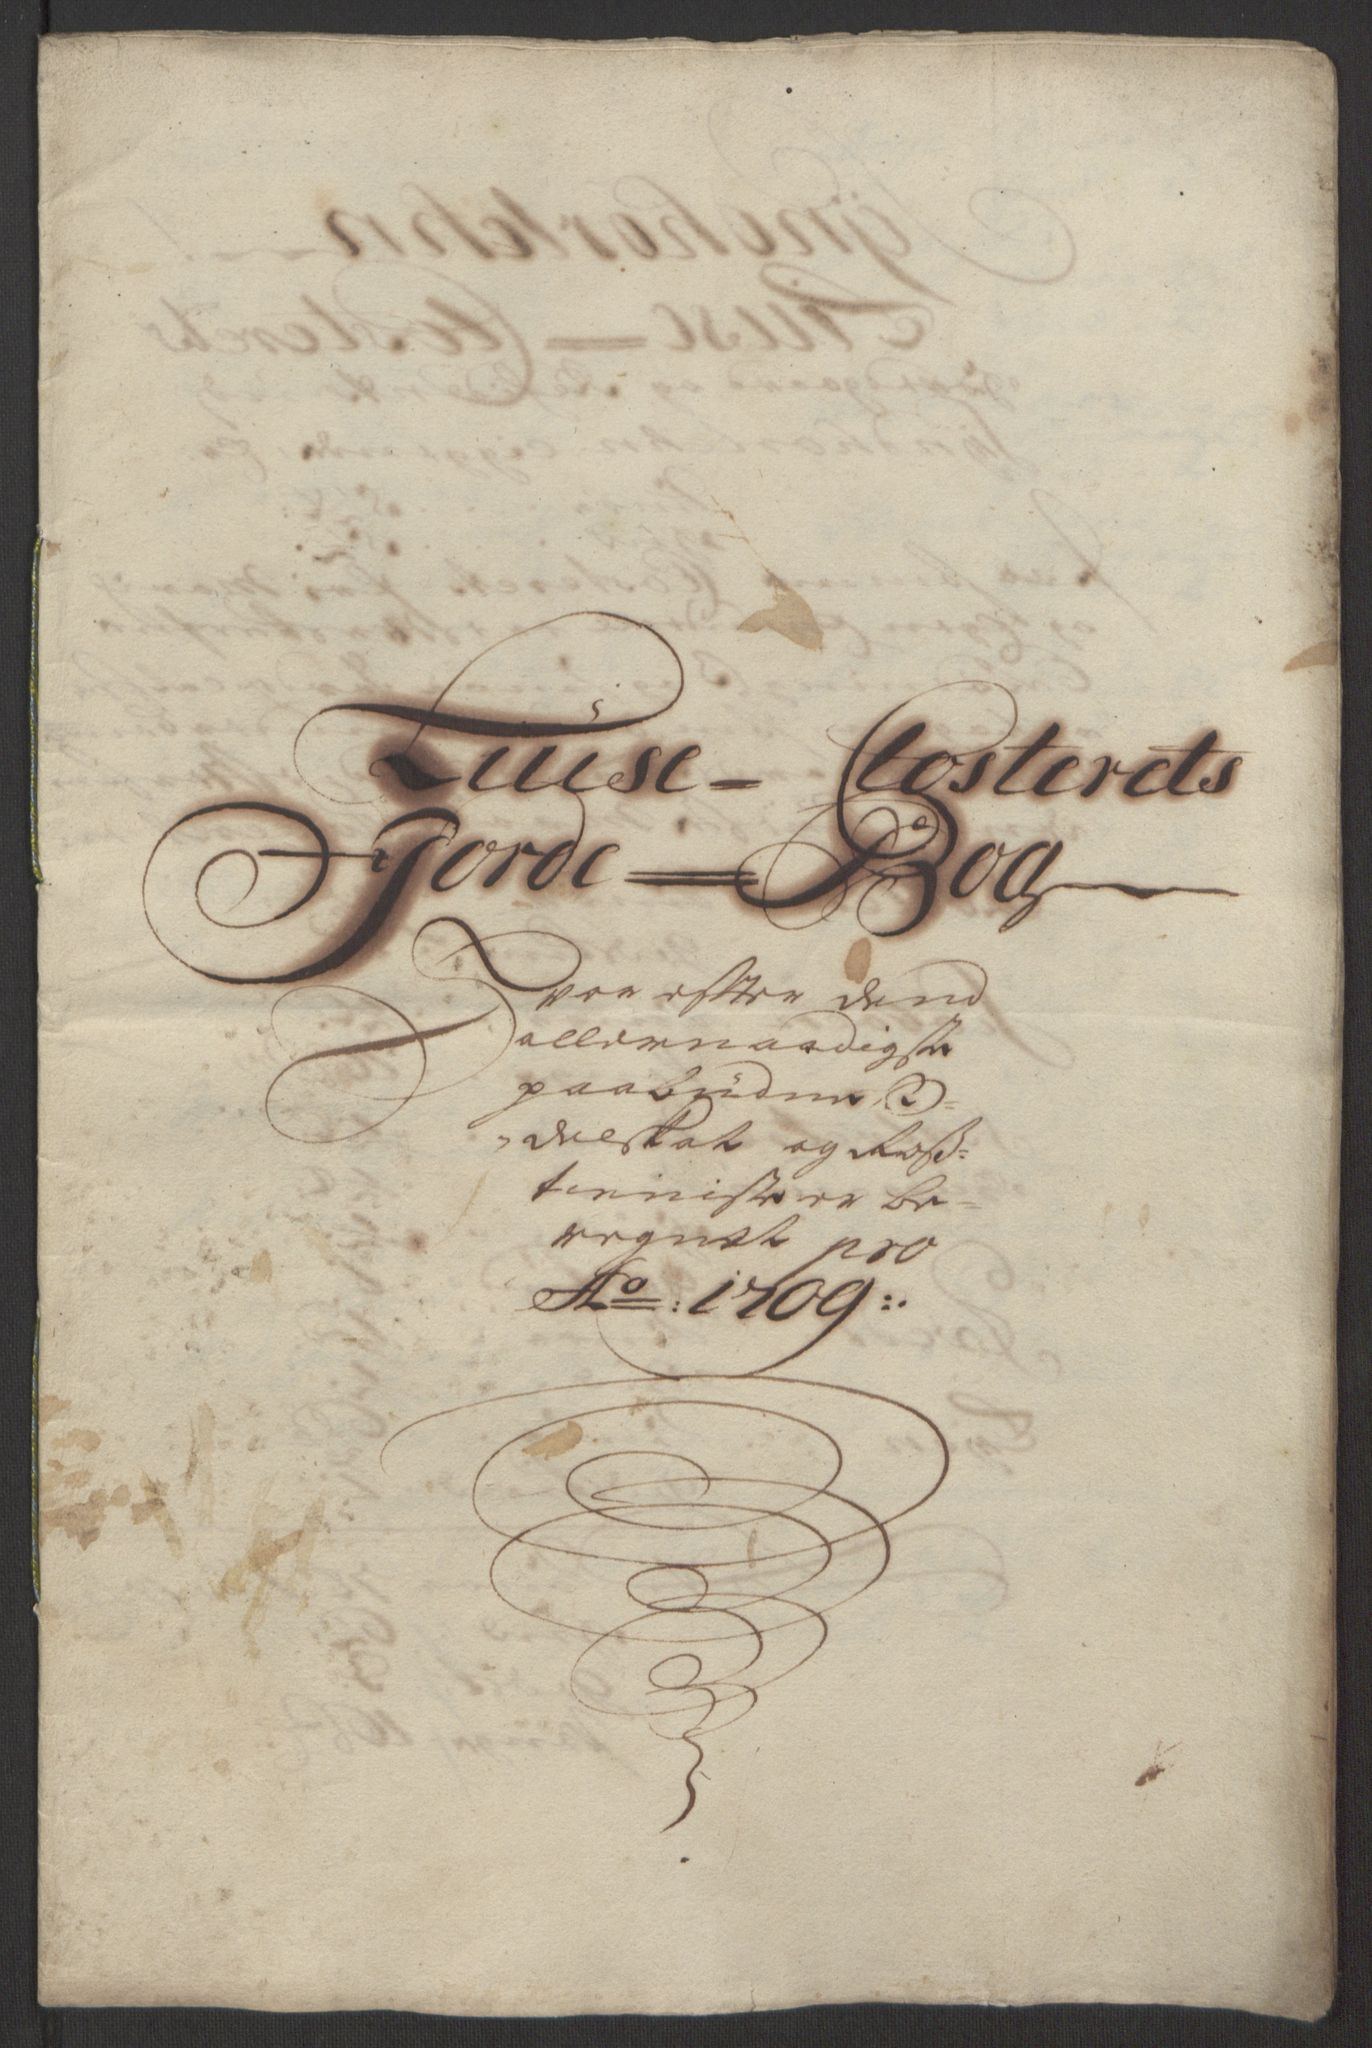 Luüse – Closterets
Jorde – Bog
Hvor efter dend
allernaadigste
paabudne O=
deelskat og Roß=
tienniste er be=
regnet pro
Ao: 1709:.